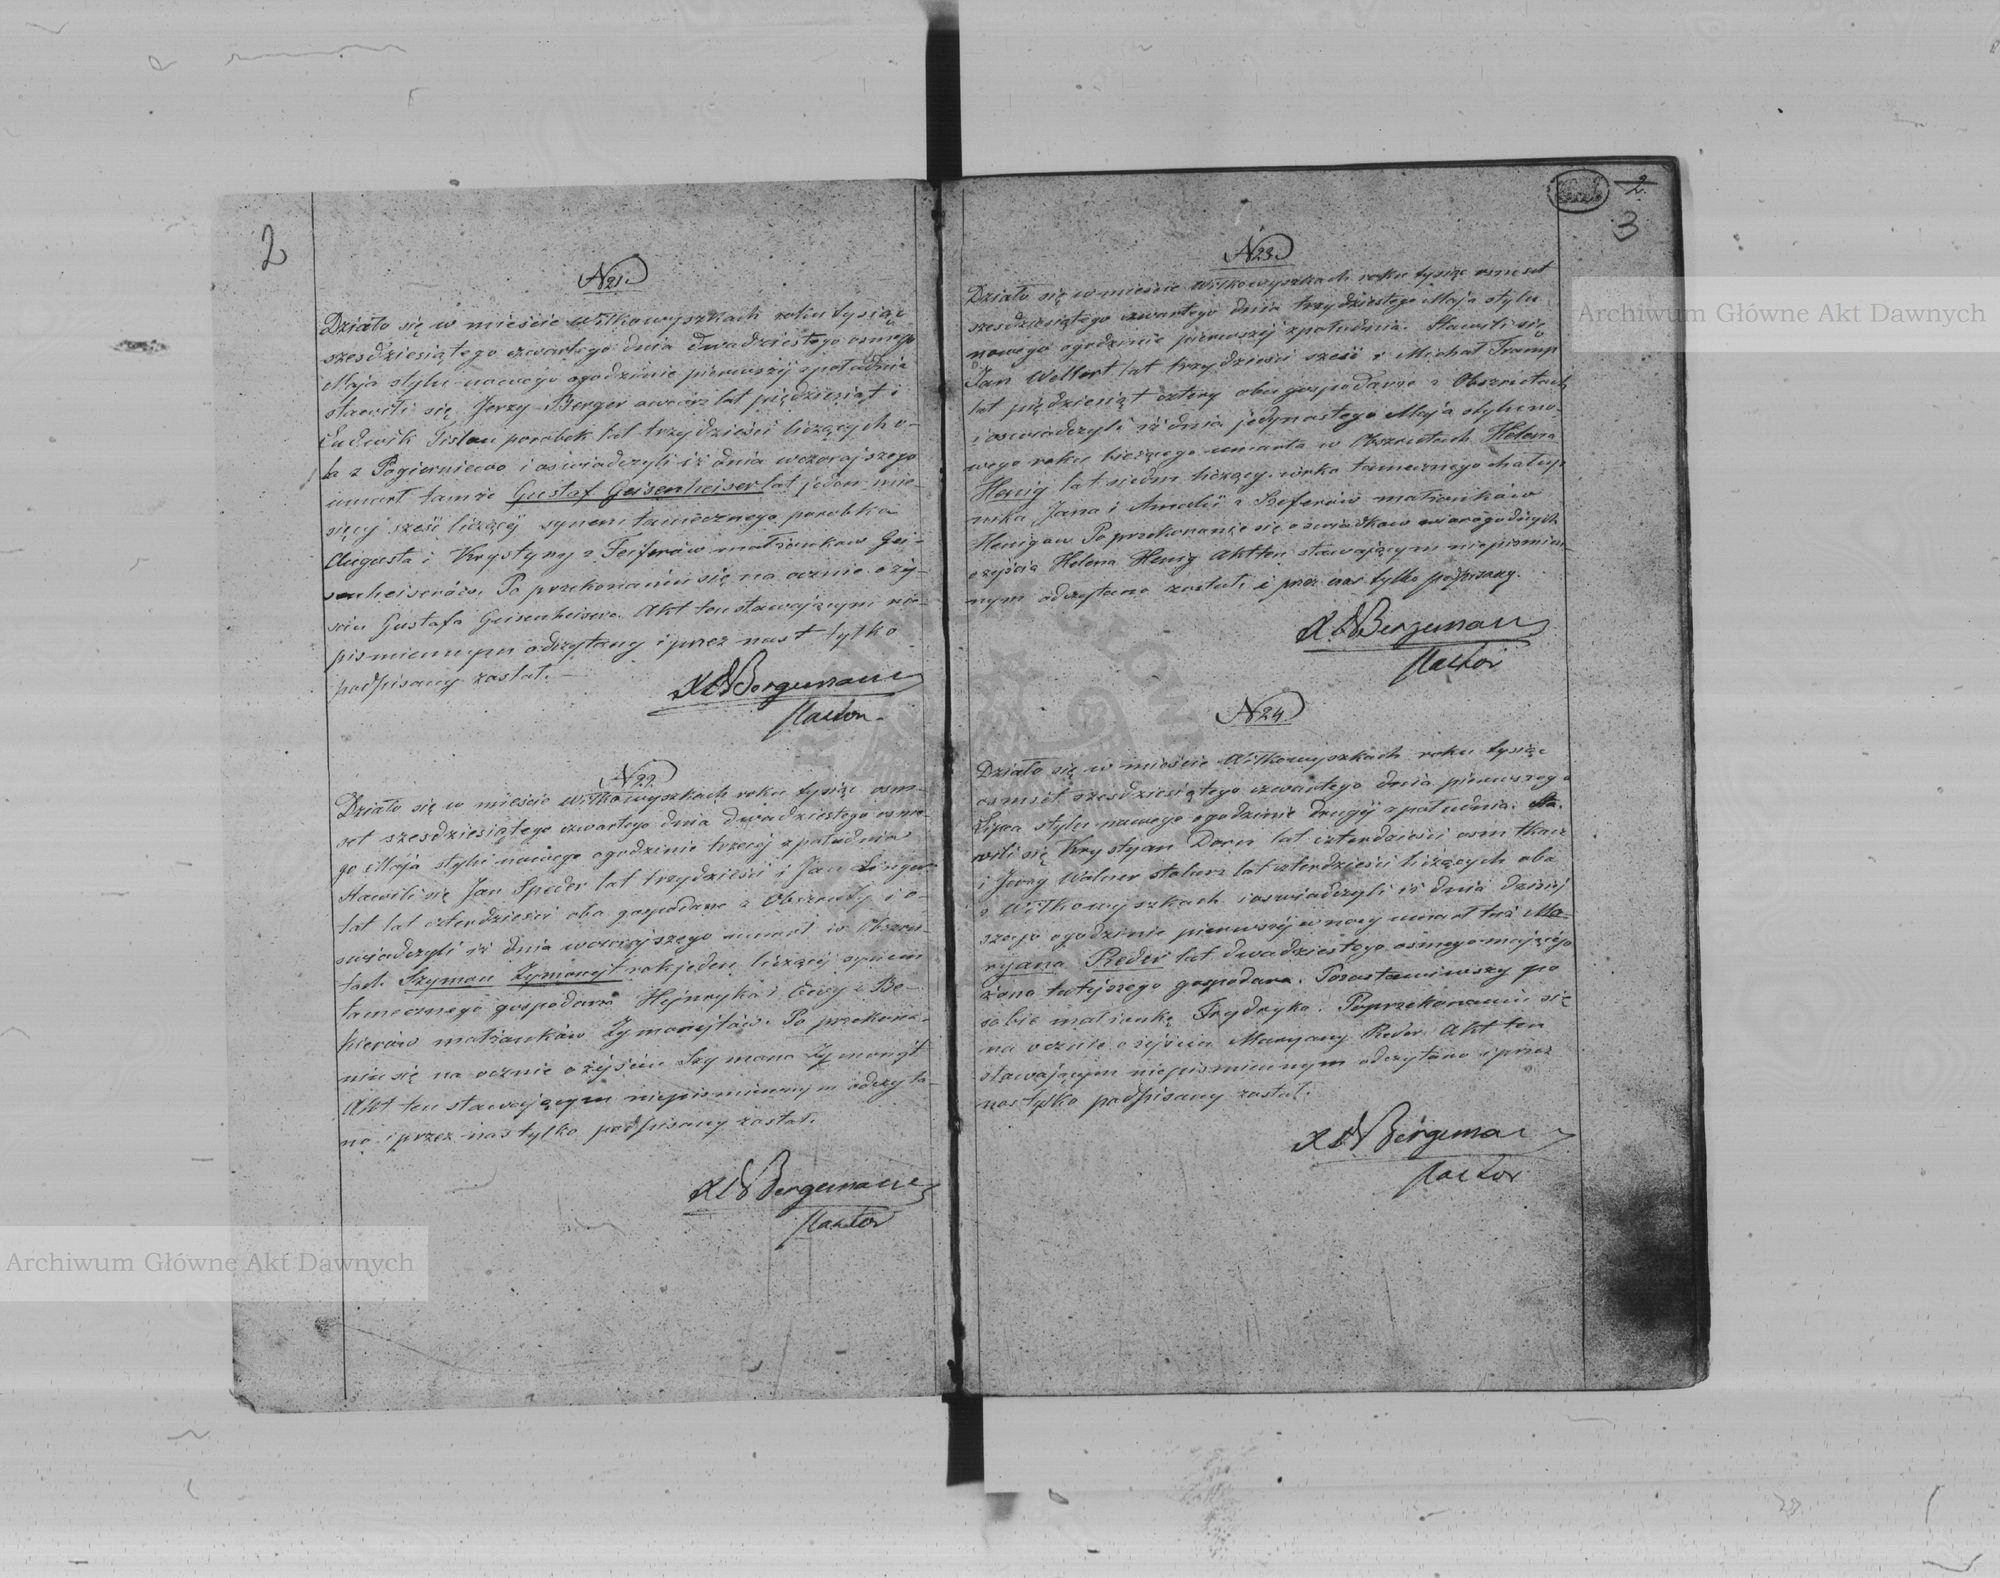 2
N21.
Działo się w mieście Wiłkowyszkach roku tysiąc
szesdziesiątego czwartego dnia dwadziestego osmego
Maja stylu nowego ogodzinie pierwszij zpołudnia
stawili się Jerzy Berger owczarz lat piędziesiąt i
Ludwik Tislau parobek lat trzydzieści liczących o-
ba z Pogierniewo i oswiadczyli iż dnia wczorajszego
umarł tamże Gustaf Geisenheiser lat jeden mie-
sięcy sześć liczący synem tamecznego parobka
Augusta i Krystyny z Feiferów małżonkow Gei-
senheiserów. Po przekonaniu się na ocznie o zej-
sciu Gustafa Geisenheisera. Akt ten stawającym nie-
pismiennym odczytany i przez nast tylko
podpisany został.
X A W Bergemann
Pastor
N22.
Działo się w mieście Wiłkowyszkach roku tysiąc osm-
set szesdziesiątego czwartego dnia dwadziestego osme-
go Maja stylu nowego ogodzinie trzeciej zpołudnia
Stawili się Jan Speder lat trzydzieści i Jan
lat czterdzieści oba gospodarze z Obszruty i o-
swiadczyli iż dnia wczorajszego umarł w Obszru-
tach Szyman Zymonajt rok jeden liczący synem
tamecznego gospodarza Hejnryka i Ewy z Be-
kierów małżonków Zymonajtów. Po przekona-
niu się na ocznie o zejściu Szymana Zymonajt
Akt ten stawającym niepismiennym odczyta-
no i przez nas tylko podpisany został.
X A W Bergemann
Pastor
2
3
N23.
Działo się w mieście Wiłkowyszkach roku tysiąc osmset
szesdziesiątego czwartego dnia trzydziestego Maja stylu
nowego ogodzinie pierwszej zpołudnia. Stawili się
Jan Weltert lat trzydzieści sześć i Michał Tramp
lat pięćdziesiąt cztery oba gospodarze z Obszrutach
i oswiadczyli iż dnia jedynastego Maja stylu no-
wego roku bieżącego umarła w Obszrutach Helena
Henig lat siedm licząca córka tamecznego chałup-
nika Jana i Amalii z Szeferów małżonków
Henigow Po przekonanie się o swiadkow wiarogodnych
o zejścia Helena Henig Akt ten stawającym niepismien-
nym odczytano zostuł i prez nas tylko podpisany.
X A W Bergemann
Pastor
N24.
Działo się w mieście Wiłkowyszkach roku tysiąc
osmset szesdziesiątego czwartego dnia pierwszego
Lipca stylu nowego ogodzinie drugij zpołudnia. Sta-
wili się Krystyan Dorn lat czterdzieści osm tkacz
i Jerzy Walner stolarz lat czterdzieści liczących oba
z Wiłkowyszkach i oswiadczyli iż dnia dzisiej
szego ogodzinie pierwszej w nocy umarła tuż Ma-
ryana Reder lat dwadziestego osmego mającego
żona tutejszego gospodara. Pozostawiwszy po
sobie małżonkę Frydryka. Poprzekonaniu się
na ocznie o zejściu Maryany Reder. Akt ten
stawającym niepismiennym odczytano i przez
nas tylko podpisany został.
X A W Bergeman
Pastor
Archiwum Główne Akt Dawnych
Archiwum Główne Akt Dawnych